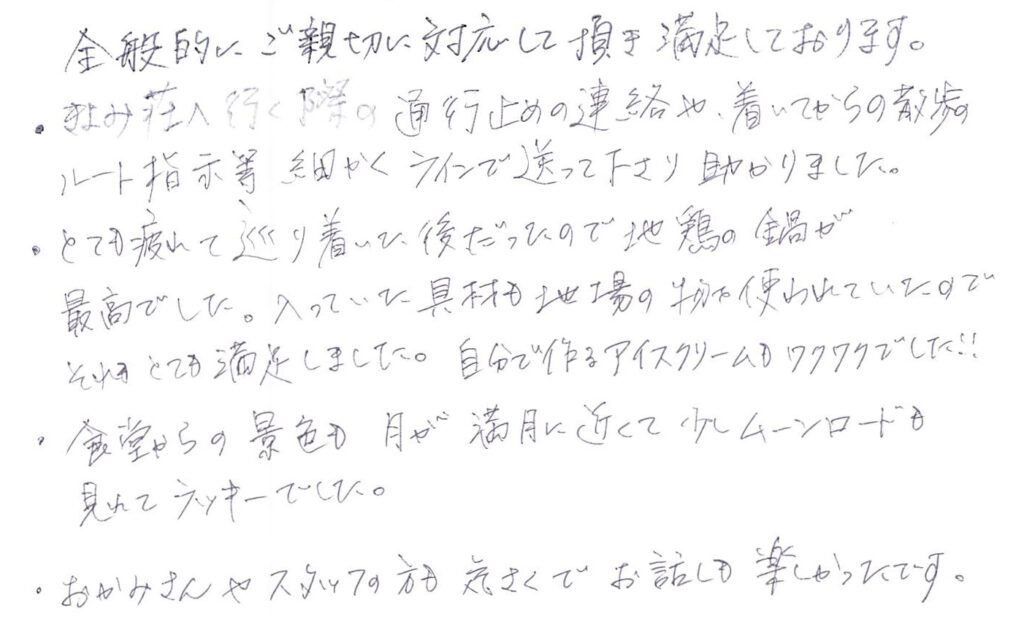 全般的にご親切に対応して頂き満足しております。
・まよみ荘へ行く際の通行止めの連絡や、着いてからの散歩の
ルート指示等 細かくラインで送って下さり助かりました。
・とても疲れて辿り着いた後だったので地鶏の鍋が
最高でした。入っていた具材も地場の物が使われていたので
それもとても満足しました。自分で作るアイスクリームもワクワクでした!!
・食堂からの景色も月が満月に近くて少しムーンロードも
見れてラッキーでした。
・おかみさんやスタッフの方も気さくでお話しも楽しかったです。